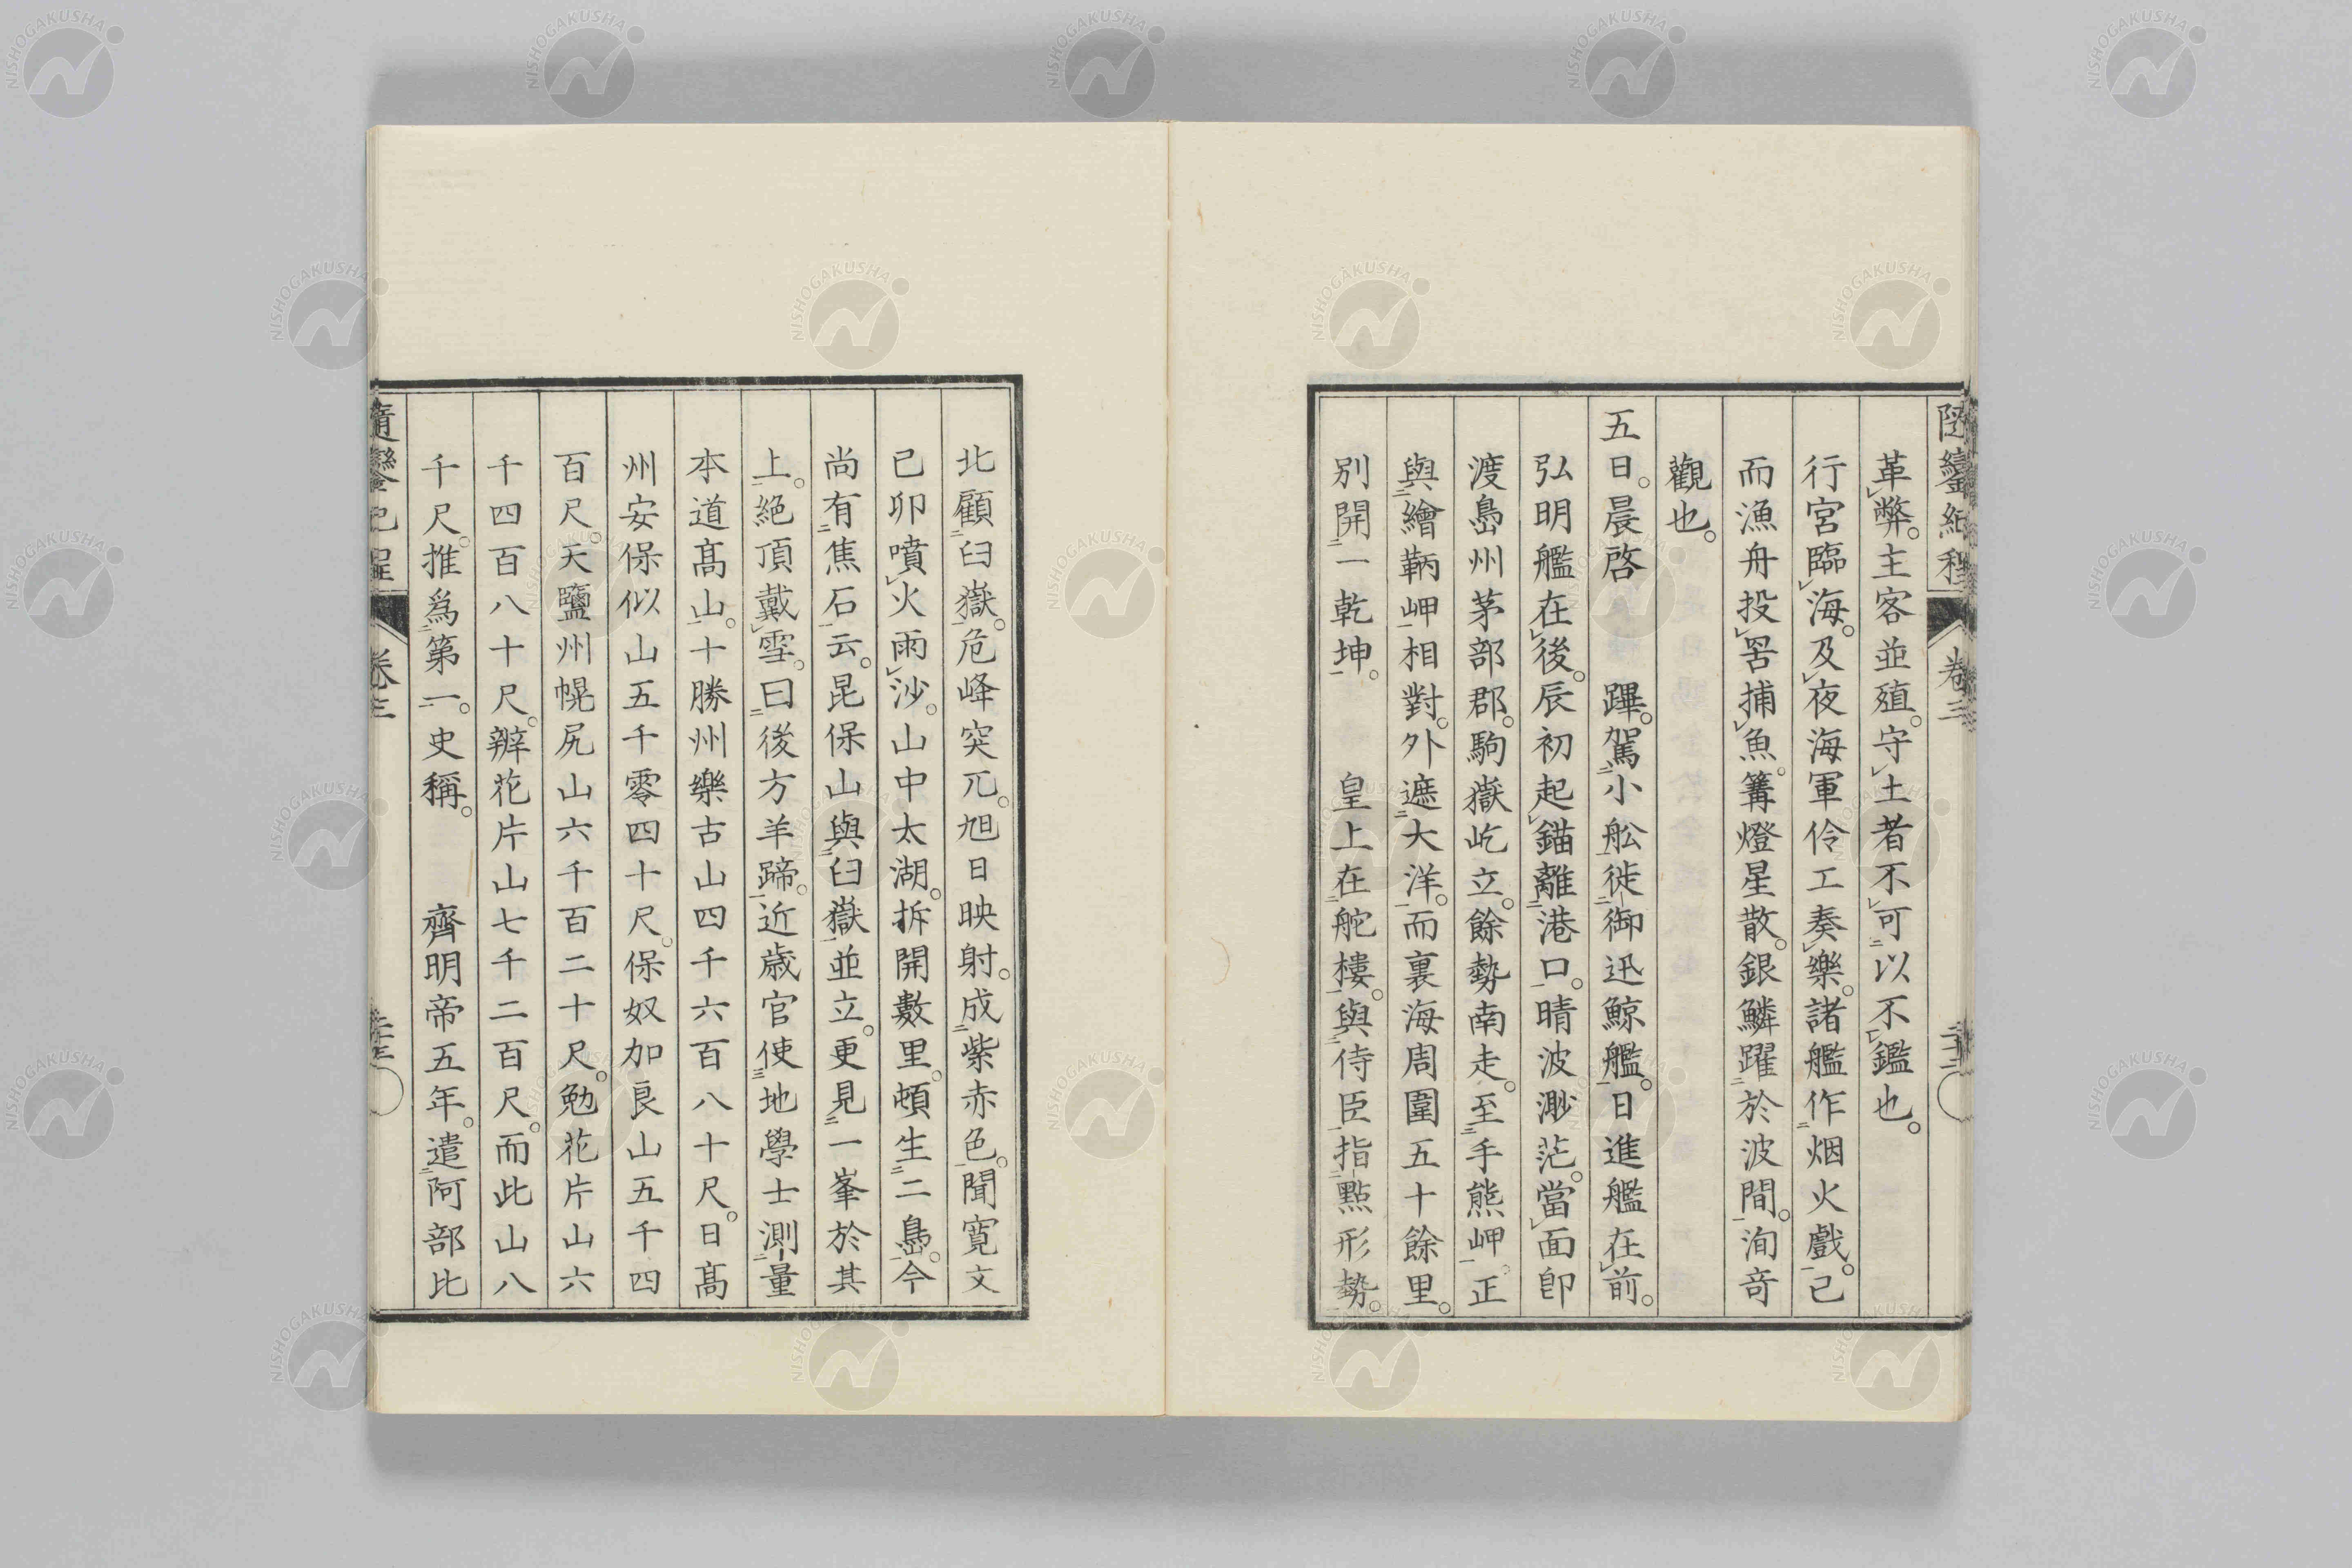 革弊。主客並殖。守土者不可以不鑑也。
行宮臨海。及夜海軍伶工奏樂。諸艦作烟火戲。已
而漁舟投罟捕魚。篝燈星散。銀鱗躍於波間。洵奇
觀也。
五日。晨啓　　蹕。駕小舩徙御迅鯨艦。日進艦在前。
弘明艦在後。辰初起錨離港口。晴波渺茫。當面卽
渡島州茅部郡。駒嶽屹立。餘勢南走。至手熊岬。正
與繪鞆岬相對。外遮大洋。而裏海周圍五十餘里。
別開一乾坤。　　皇上在舵樓。與侍臣指點形勢。
北顧臼嶽。危峰突兀。旭日映射。成紫赤色。聞寬文
己卯噴火雨沙。山中太湖。拆開數里。頓生二島。今
尚有焦石云。昆保山與臼嶽並立。更見一峯於其
上。絕頂戴雪。曰後方羊蹄。近歲官使地學士測量
本道高山。十勝州樂古山四千六百八十尺。日高
州安保似山五千零四十尺。保奴加良山五千四
百尺。天鹽州幌尻山六千百二十尺。勉花片山六
千四百八十尺。辨花片山七千二百尺。而此山八
千尺。推爲第一。史稱。　　齊明帝五年。遣阿部比
隨鑾紀程
卷三
NISHOGAKUSHA